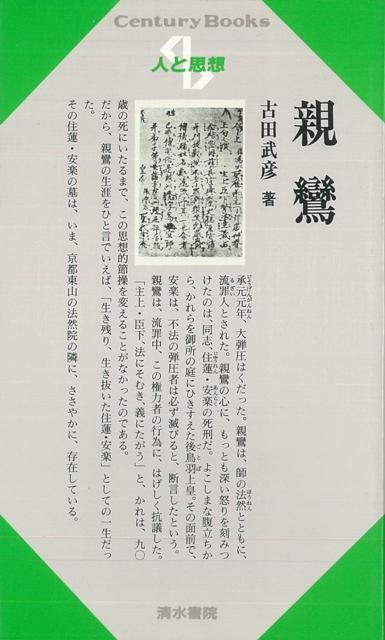 Century Books
人と思想
親鸞
古田武彦 著
承元元年、大弾圧はくだった。親鸞は、師の法然とともに、
流罪人とされた。親鸞の心に、もっとも深い怒りを刻みつ
けたのは、同志、住蓮・安楽の死刑だ。よこしまな腹立ちか
ら、かれらを御所の庭にひきすえた後鳥羽上皇。その面前で、
安楽は、不法の弾圧者は必ず滅びると、断言したという。
親鸞は、流罪中、この権力者の行為に、はげしく抗議した。
「主上・臣下、法にそむき、義にたがう」と、かれは、九〇
歳の死にいたるまで、この思想的節操を変えることがなかったのである。
だから、親鸞の生涯をひと言でいえば、「生き残り、生き抜いた住蓮・安楽」としての一生だっ
た。
その住蓮・安楽の墓は、いま、京都東山の法然院の隣に、ささやかに、存在している。
清水書院